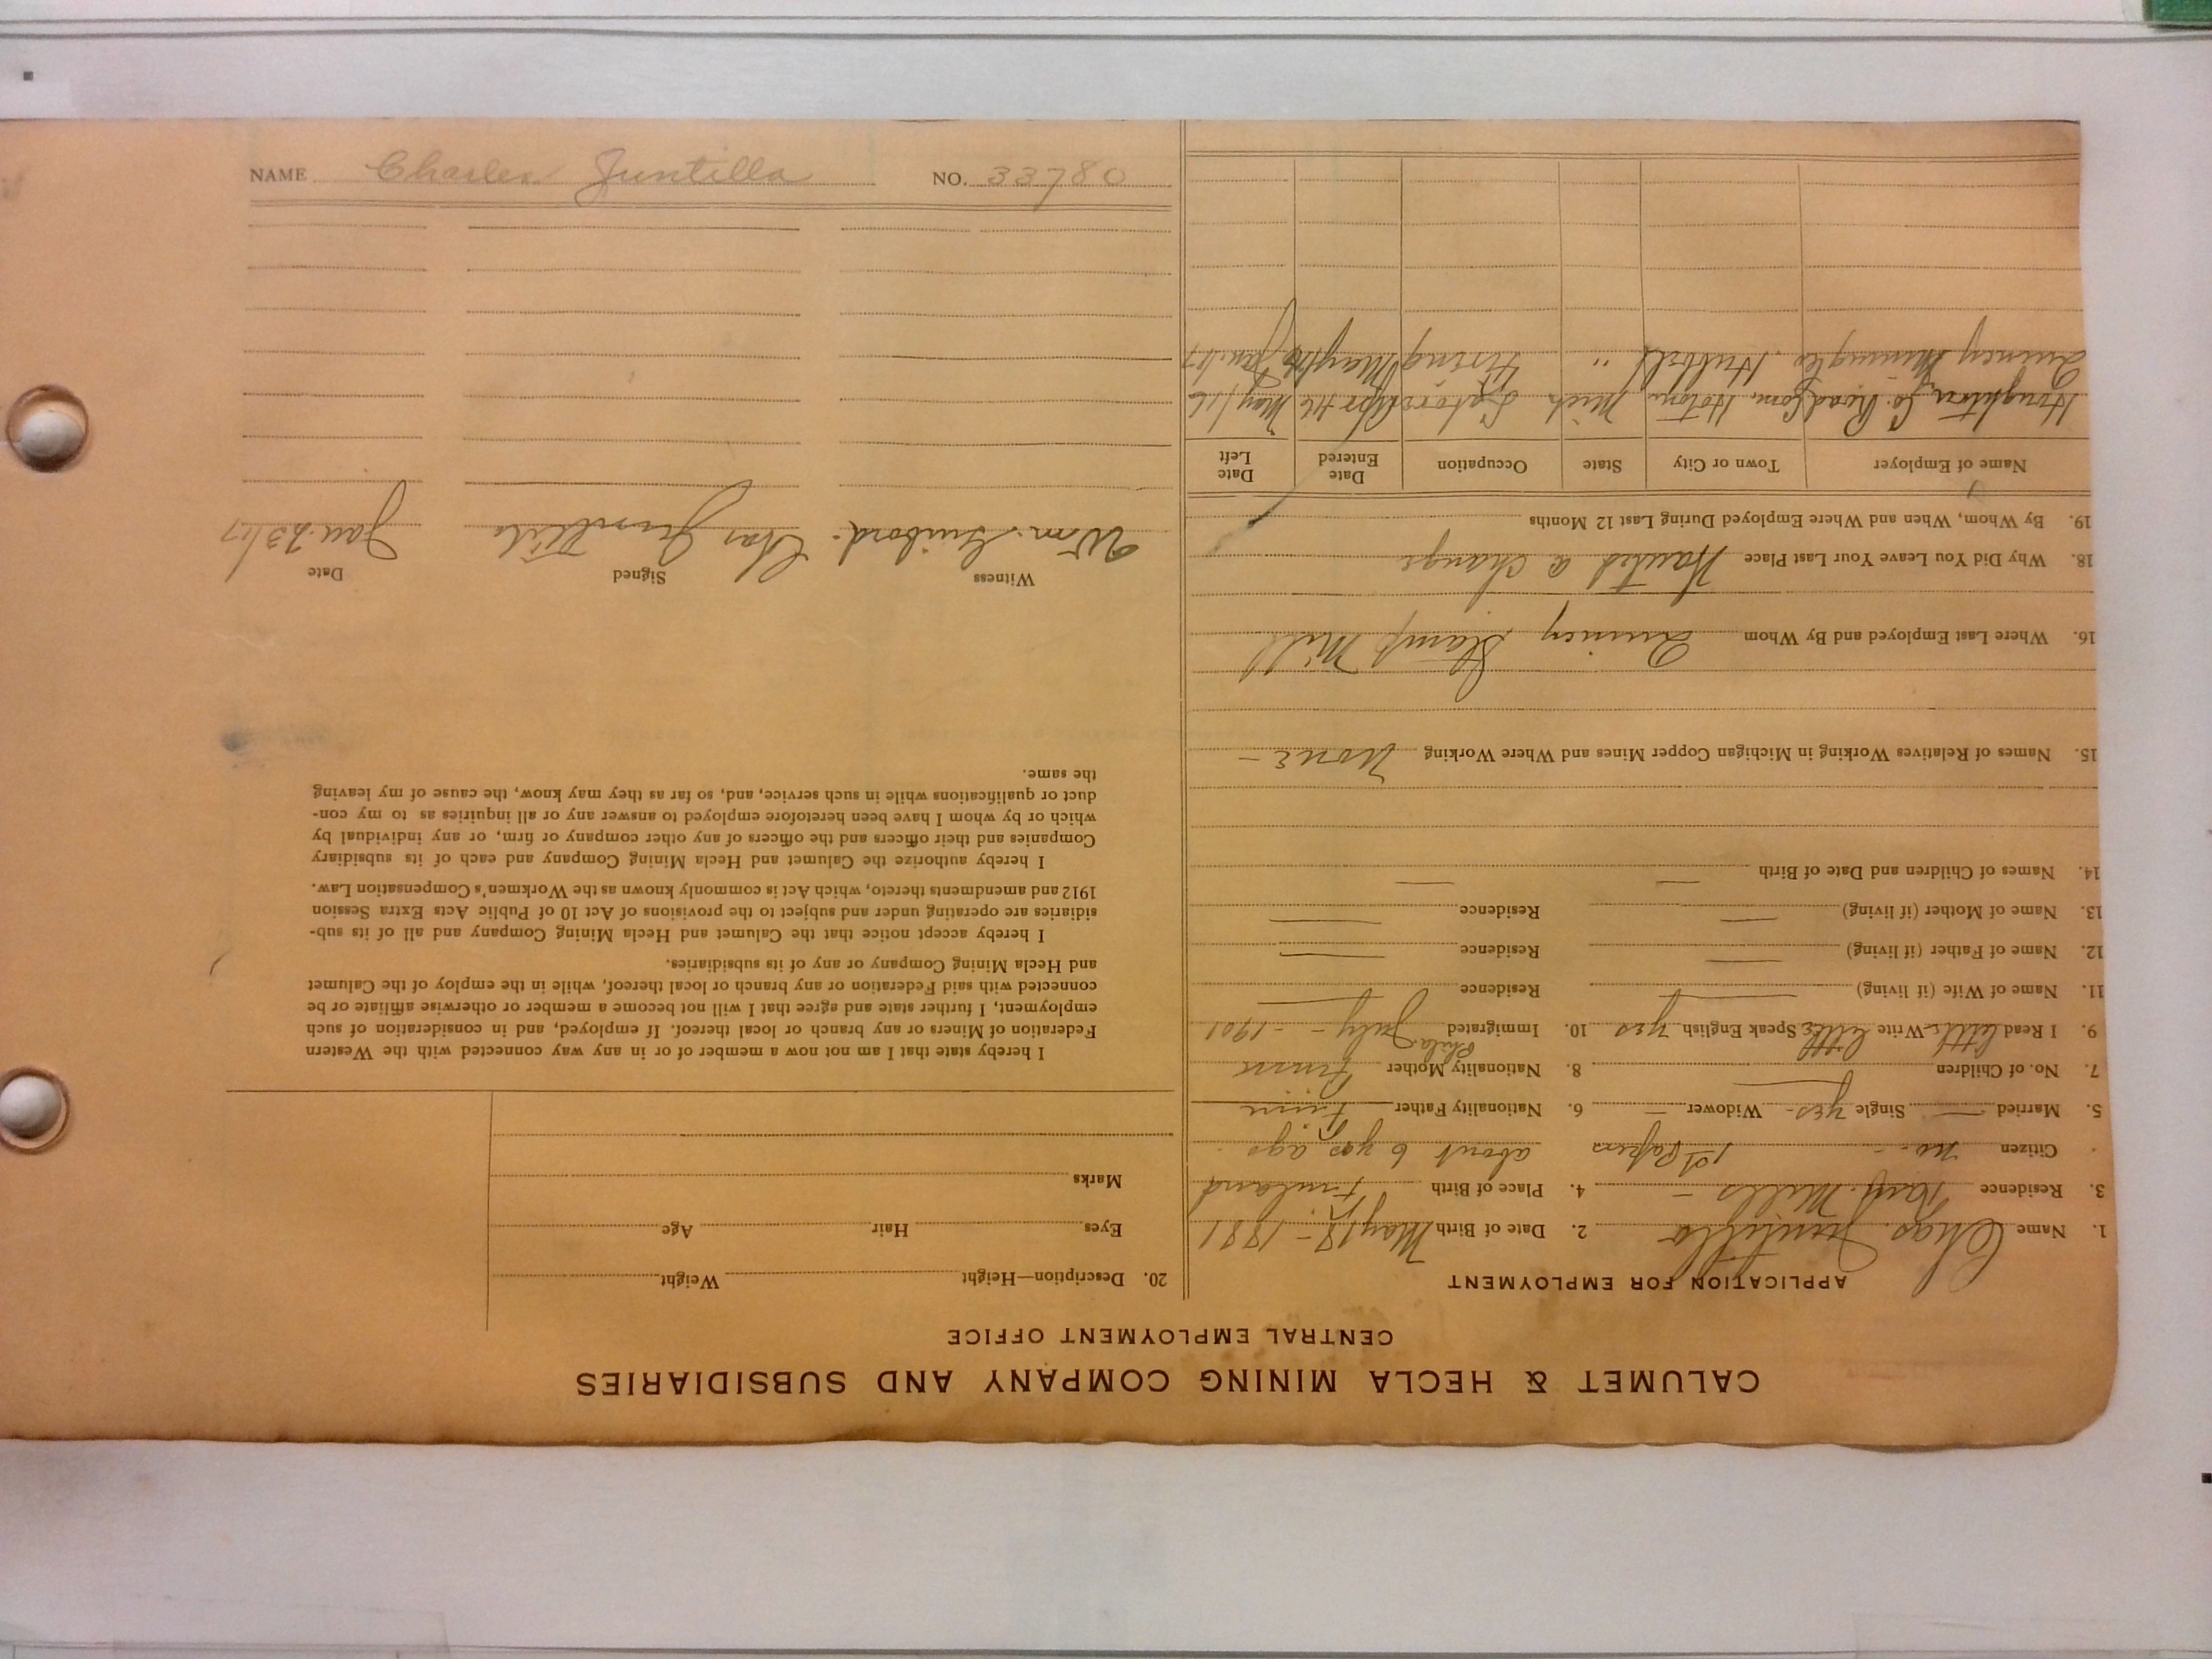 CALUMET & HECLA MINING COMPANY AND SUBSIDIARIES
CENTRAL EMPLOYMENT OFFICE
APPLICATION FOR EMPLOYMENT
1. Name Chas. Juntilla 2. Date of Birth May 18 - 1881
3. Residence Mills - 4. Place of Birth Finland
Citizen no. - 1st Papers about 6 yrs ago.
5. Married — Single yes - Widower — 6. Nationality Father Finn
7. No. of Children — 8. Nationality Mother Finn
9. I Read little Write little Speak English yes 10. Immigrated July - - 1901
Phila
11. Name of Wife (if living) — Residence —
12. Name of Father (if living) — Residence —
13. Name of Mother (if living) — Residence —
14. Names of Children and Date of Birth — —
15. Names of Relatives Working in Michigan Copper Mines and Where Working None -
16. Where Last Employed and By Whom Quincy Stamp Mill
18. Why Did You Leave Your Last Place Wanted a change
19. By Whom, When and Where Employed During Last 12 Months
Name of Employer Town or City State Occupation Date Entered Date Left
Houghton Co. Road Com. Hoton. Mich Labor Apr 16 May/16
Quincy Mining Co. Hubbell " May/16 Jan. 17
20. Description—Height Weight
Eyes Hair Age
Marks
I hereby state that I am not now a member of or in any way connected with the Western
Federation of Miners or any branch or local thereof. If employed, and in consideration of such
employment, I further state and agree that I will not become a member or otherwise affiliate or be
connected with said Federation or any branch or local thereof, while in the employ of the Calumet
and Hecla Mining Company or any of its subsidiaries.
I hereby accept notice that the Calumet and Hecla Mining Company and all of its sub-
sidiaries are operating under and subject to the provisions of Act 10 of Public Acts Extra Session
1912 and amendments thereto, which Act is commonly known as the Workmen's Compensation Law.
I hereby authorize the Calumet and Hecla Mining Company and each of its subsidiary
Companies and their officers and the officers of any other company or firm, or any individual by
which or by whom I have been heretofore employed to answer any or all inquiries as to my con-
duct or qualifications while in such service, and, so far as they may know, the cause of my leaving
the same.
Witness Signed Date
Wm. Guibord. Chas Juntila Jan. 23/17
NAME Charles Juntilla NO. 33780